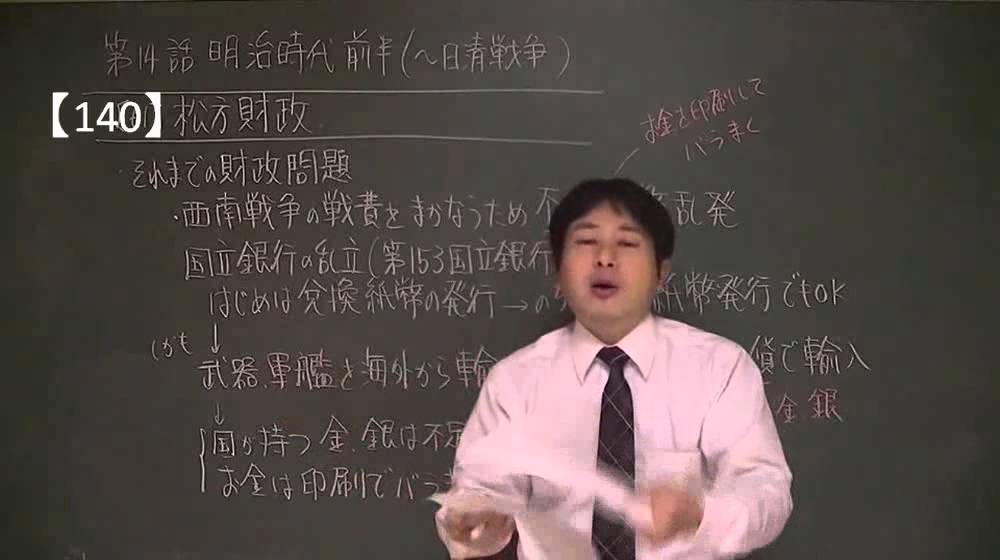 第14話 明治時代前半(〜日清戦争)
【140】松方財政
お金を印刷して
バラまく
・それまでの財政問題
・西南戦争の戦費をまかなうため不 乱発
国立銀行の乱立(第153国立銀行
はじめは兌換紙幣の発行→ 紙幣発行でもOK
しかも↓
武器、軍艦を海外から輸 で輸入
金、銀
↓
国が持つ金、銀は不足
お金は印刷でバラま